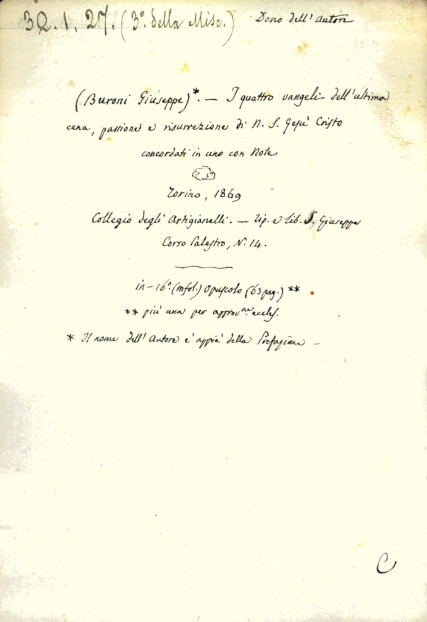 32.1.27. (3º. della Misc.) Dono dell'Autore
(Buroni Giuseppe)*. — I quattro vangeli dell'ultima
cena, passione e risurrezione di N. S. Gesù Cristo
concordati in uno con Note
Torino, 1869
Collegio degli Artigianelli. — Tip. e Lib. S. Giuseppe
Corso Palestro, Nº 14.
in-16º. (mfol.) opuscolo (63 pag.) **
** più una per approv.ne eccles.
* Il nome dell'Autore è appiè della Prefazione —
C